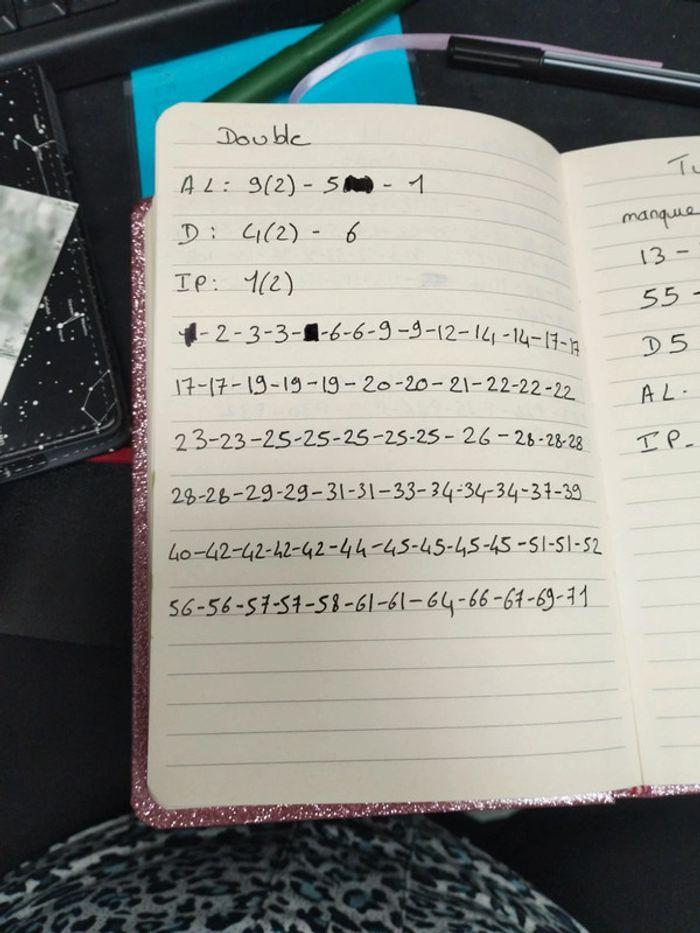 Double
AL: 9(2) - 5 - 1
D: 4(2) - 6
IP: 1(2)
- 2 - 3 - 3 - - 6 - 6 - 9 - 9 - 12 - 14 - 14 - 17 - 17
17-17-19-19-19-20-20-21-22-22-22
23-23-25-25-25-25-25-26-28-28-28
28-28-29-29-31-31-33-34-34-34-37-39
40-42-42-42-42-44-45-45-45-45-51-51-52
56-56-57-57-58-61-61-64-66-67-69-71
manque
13 -
55 -
D5
AL -
IP -